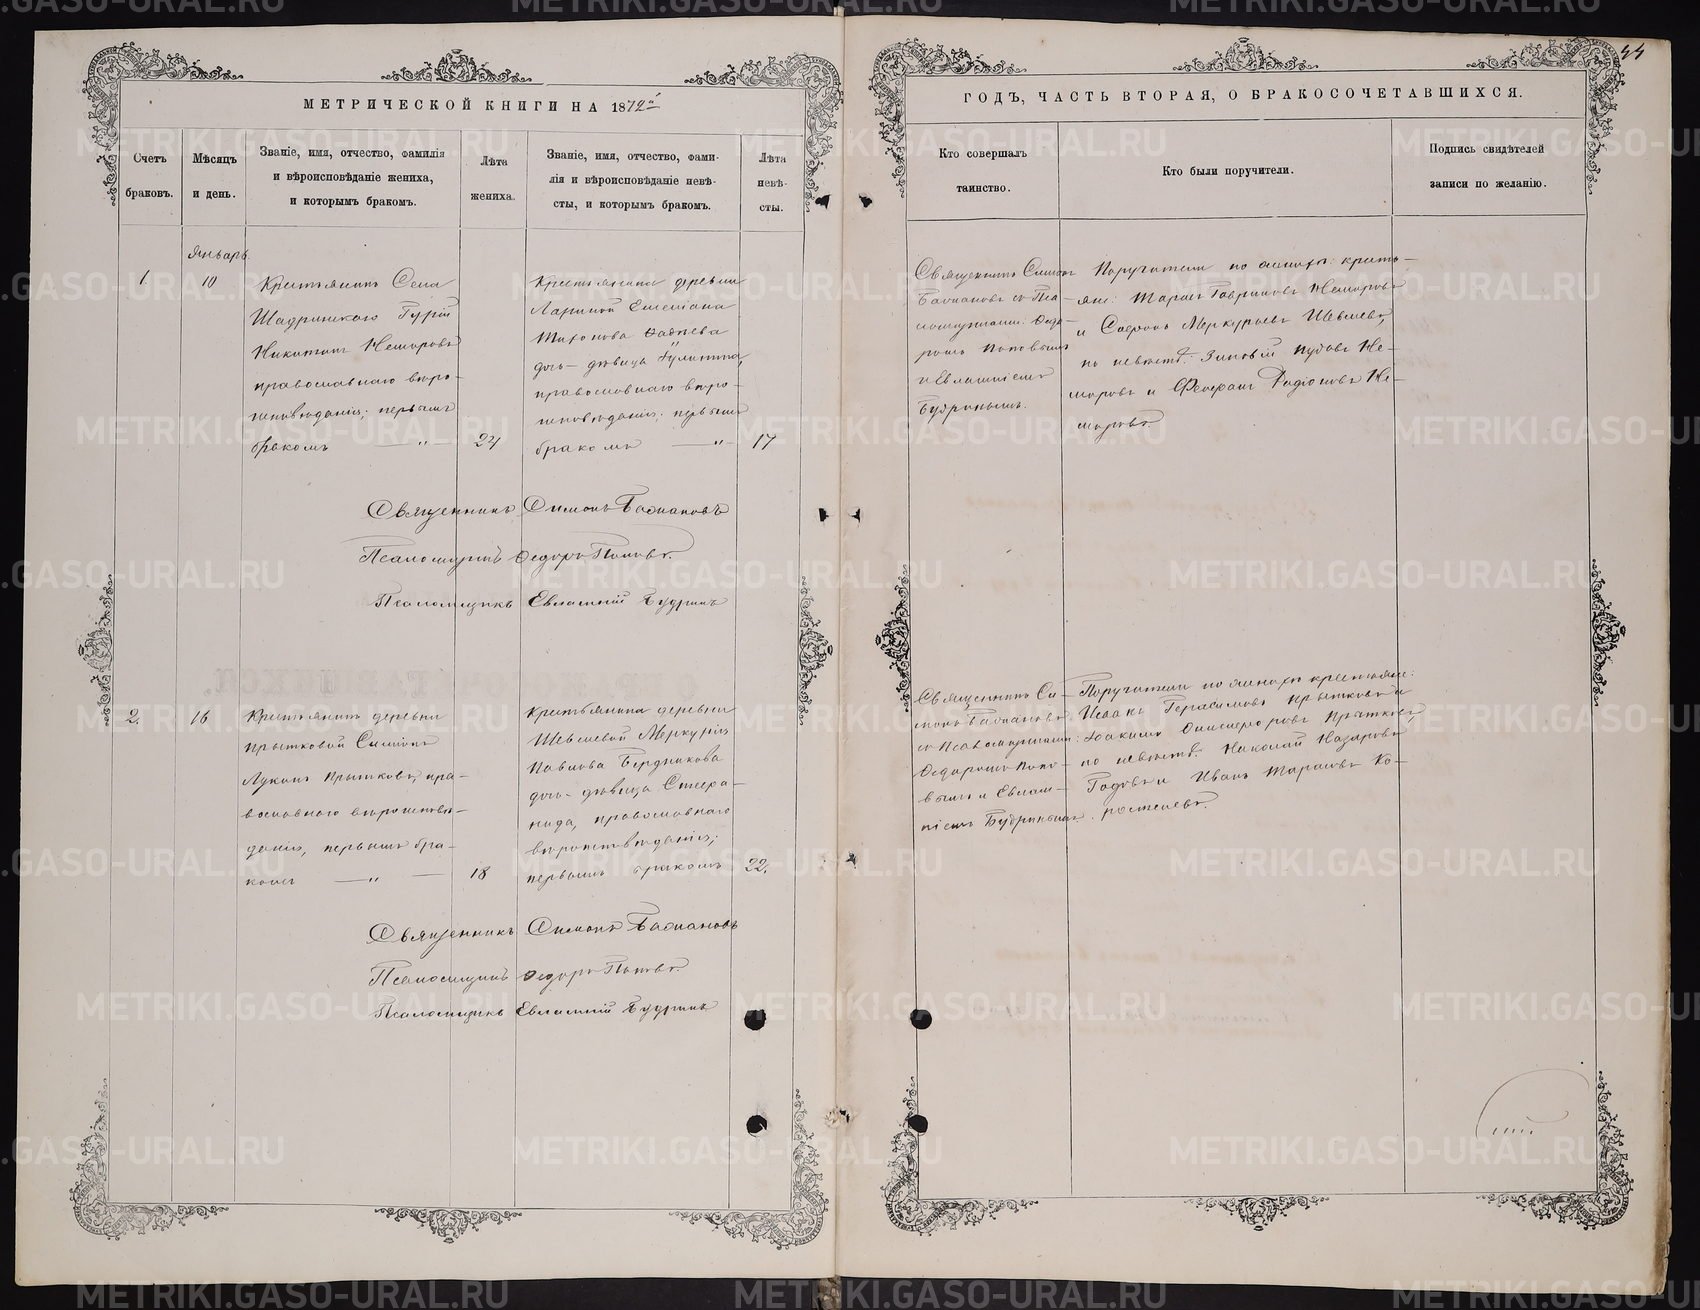 44
МЕТРИЧЕСКОЙ КНИГИ НА 1872й
ГОДЪ, ЧАСТЬ ВТОРАЯ, О БРАКОСОЧЕТАВШИХСЯ.
Счетъ
браковъ.
Мѣсяцъ
и день.
Званіе, имя, отчество, фамилія
и вѣроисповѣданіе жениха,
и которымъ бракомъ.
Лѣта
жениха.
Званіе, имя, отчество, фами-
лія и вѣроисповѣданіе невѣ-
сты, и которымъ бракомъ.
Лѣта
невѣ-
сты.
Кто совершалъ
таинство.
Кто были поручители.
Подпись свидѣтелей
записи по желанію.
1.
Январь
10
Крестьянинъ Села
Шадринскаго Гурій
Никитинъ Неморовъ
православнаго вѣро-
исповѣданія; первымъ
бракомъ — „ —
24
Крестьянина деревни
Лариной Емеліана
Тихонова
дочь - дѣвица
православнаго вѣро-
исповѣданія; первымъ
бракомъ — „ —
17
Священникъ Симонъ
Бабиановъ съ Пса-
ломщиками: Федо-
ромъ Поповымъ
и Евлампіемъ
Будринымъ.
Поручители по женихѣ: кресть-
яне: Тарасъ Гавриловъ Неморовъ
и Софронъ Меркурьевъ Шевелевъ,
по невѣстѣ: Зиновій Пудовъ Не-
моровъ и Феофанъ Родіоновъ Не-
моровъ.
Священникъ Симонъ Бабиановъ
Псаломщикъ Федоръ Поповъ.
Псаломщикъ Евлампій Будринъ
2.
16
Крестьянинъ деревни
Прытковой Симонъ
Лукинъ Прытковъ, пра-
вославнаго вѣроисповѣ-
данія, первымъ бра-
комъ — „ —
18
Крестьянина деревни
Шевелевой Меркурія
Павлова Бердникова
дочь - дѣвица Степа-
нида, православнаго
вѣроисповѣданія;
первымъ бракомъ
22.
Священникъ Си-
монъ Бабиановъ
съ Псаломщиками:
Федоромъ Попо-
вымъ и Евлам-
піемъ Будринымъ.
Поручители по женихѣ крестьяне:
Исаакъ Герасимовъ Прытковъ и
Іоакимъ Прытковъ,
по невѣстѣ: Николай Назаровъ
и Иванъ Тарасовъ Ко-
ростелевъ.
Священникъ Симонъ Бабиановъ
Псаломщикъ Федоръ Поповъ.
Псаломщикъ Евлампій Будринъ
METRIKI.GASO-URAL.RU